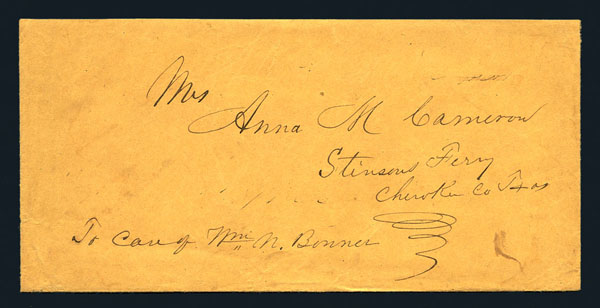 Mrs
Anna M Cameron
Stinsons Ferry
Cherokee Co Texas
To Care of Wm N. Bonner